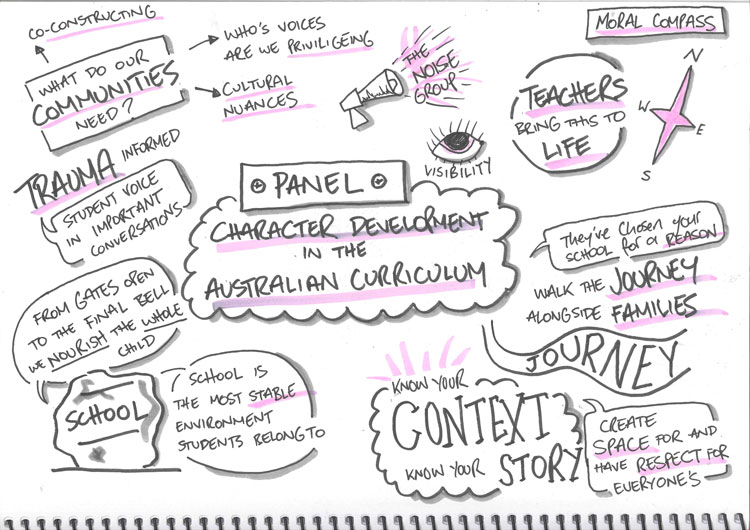 CO-CONSTRUCTING
WHAT DO OUR
COMMUNITIES
NEED?
WHO'S VOICES
ARE WE PRIVILIGEING
CULTURAL
NUANCES
THE
NOISE
GROUP
VISIBILITY
MORAL COMPASS
N
W
E
S
TEACHERS
BRING THIS TO
LIFE
TRAUMA INFORMED
STUDENT VOICE
IN IMPORTANT
CONVERSATIONS
PANEL
CHARACTER DEVELOPMENT
IN THE
AUSTRALIAN CURRICULUM
THEY'VE CHOSEN YOUR
SCHOOL FOR A REASON
WALK THE JOURNEY
ALONGSIDE FAMILIES
JOURNEY
FROM GATES OPEN
TO THE FINAL BELL
WE NOURISH THE WHOLE
CHILD
SCHOOL
SCHOOL IS
THE MOST STABLE
ENVIRONMENT
STUDENTS BELONG TO
KNOW YOUR
CONTEXT
KNOW YOUR STORY
CREATE
SPACE FOR AND
HAVE RESPECT FOR
EVERYONE'S